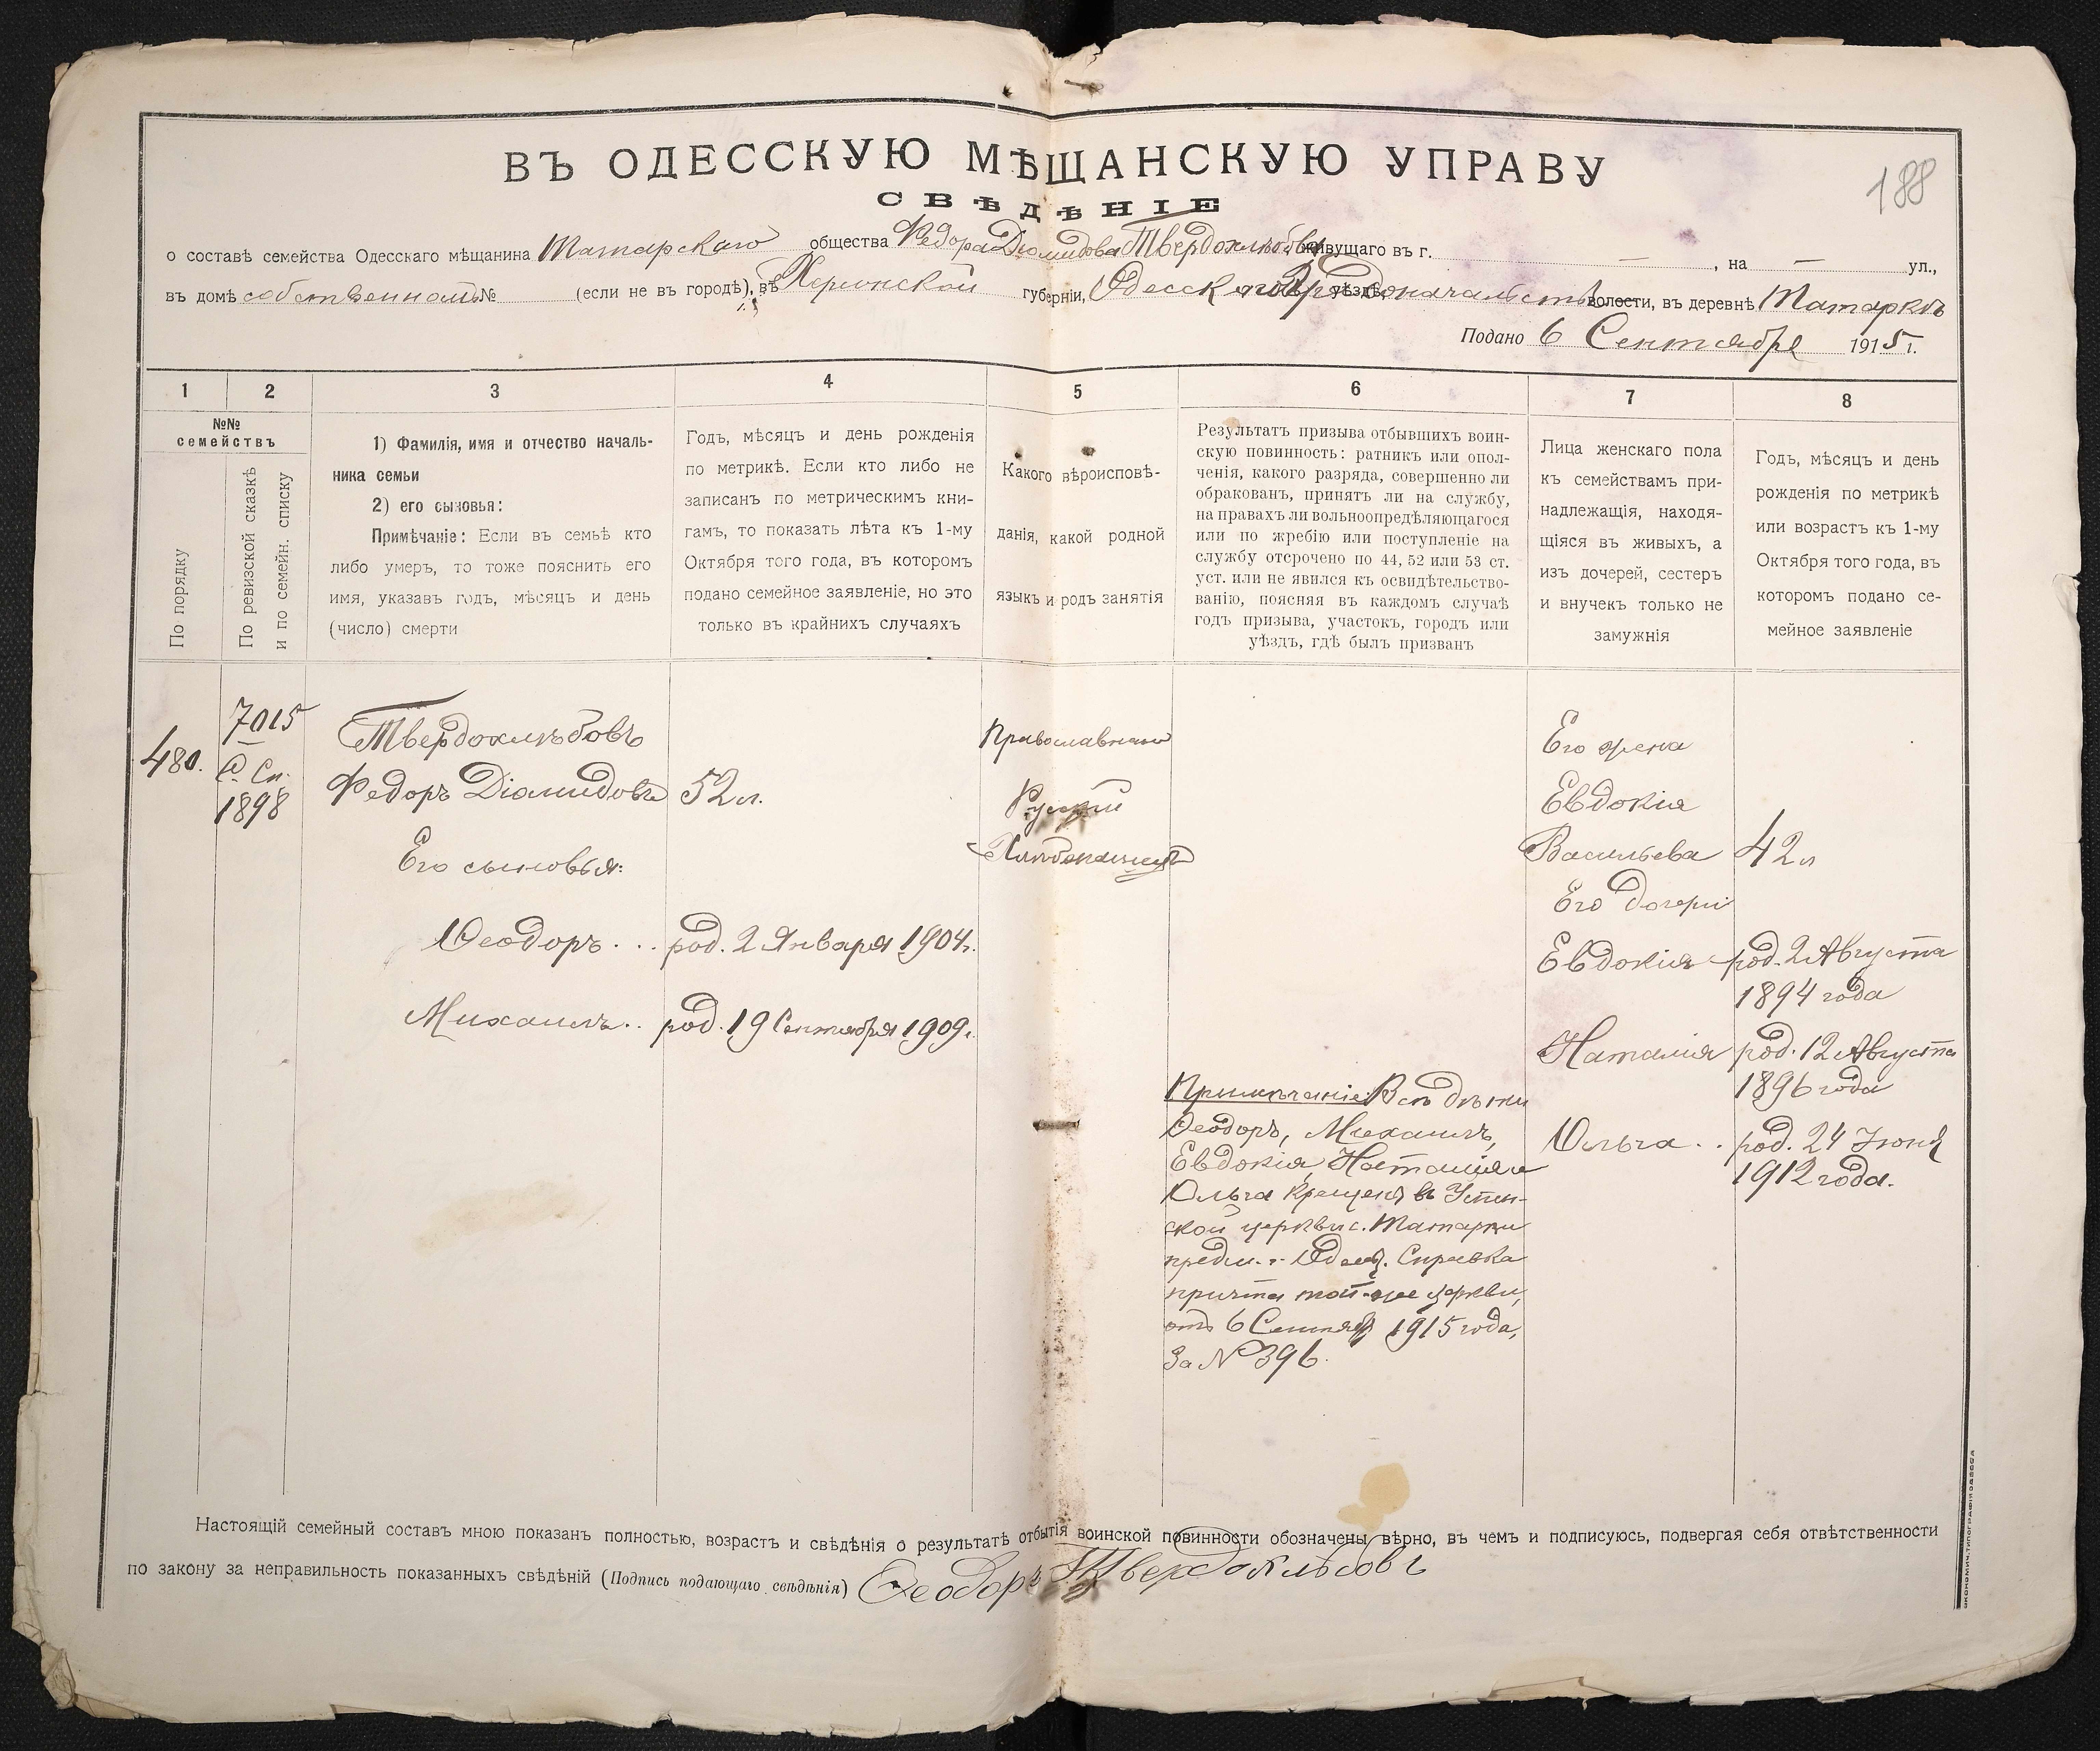 188
ВЪ ОДЕССКУЮ МѢЩАНСКУЮ УПРАВУ
СВѢДѢНІЕ
о составѣ семейства Одесскаго мѣщанина Татарскаго общества Федора Діомидова Твердохлѣбова живущаго въ г. — , на — ул.,
въ домѣ собственномъ № (если не въ городѣ), въ Херсонской губерніи, Одесскаго Градоначальства уѣзда волости, въ деревнѣ Татаркѣ
Подано 6 Сентября 1915 г.
1 2 3 4 5 6 7 8
№№ семействъ
По порядку
По ревизской сказкѣ
и по семейн. списку
1) Фамилія, имя и отчество началь-
ника семьи
2) его сыновья:
Примѣчаніе: Если въ семьѣ кто
либо умеръ, то тоже пояснить его
имя, указавъ годъ, мѣсяцъ и день
(число) смерти
Годъ, мѣсяцъ и день рожденія
по метрикѣ. Если кто либо не
записанъ по метрическимъ кни-
гамъ, то показать лѣта къ 1-му
Октября того года, въ которомъ
подано семейное заявленіе, но это
только въ крайнихъ случаяхъ
Какого вѣроисповѣ-
данія, какой родной
языкъ и родъ занятія
Результатъ призыва отбывшихъ воин-
скую повинность: ратникъ или опол-
ченія, какого разряда, совершенно ли
обракованъ, принятъ ли на службу,
на правахъ ли вольноопредѣляющагося
или по жребію или поступленіе на
службу отсрочено по 44, 52 или 53 ст.
уст. или не явился къ освидѣтельство-
ванію, поясняя въ каждомъ случаѣ
годъ призыва, участокъ, городъ или
уѣздъ, гдѣ былъ призванъ
Лица женскаго пола
къ семействамъ при-
надлежащія, находя-
щіяся въ живыхъ, а
изъ дочерей, сестеръ
и внучекъ только не
замужнія
Годъ, мѣсяцъ и день
рожденія по метрикѣ
или возрастъ къ 1-му
Октября того года, въ
которомъ подано се-
мейное заявленіе
480.
7015
Сп.
1898
Твердохлѣбовъ
Федоръ Діомидовъ 52 л.
Его сыновья:
Ѳеодоръ . . . род. 2 Января 1904 г.
Михаилъ . . род. 19 Сентября 1909 г.
Православнаго
Русскій
Хлѣбопашецъ
Примѣчаніе: Всѣ дѣти
Ѳеодоръ, Михаилъ,
Евдокія, Наталія и
Ольга крещены въ Успен-
ской церкви с. Татарки
предм. г. Одессы. Справка
причта той-же церкви,
отъ 6 Сентября 1915 года,
за № 396.
Его жена
Евдокія
Васильева 42 л
Его дочери
Евдокія род. 2 Августа
1894 года
Наталія род. 12 Августа
1896 года
Ольга . . род. 24 Іюня
1912 года.
Настоящій семейный составъ мною показанъ полностью, возрастъ и свѣдѣнія о результатѣ отбытія воинской повинности обозначены вѣрно, въ чемъ и подписуюсь, подвергая себя отвѣтственности
по закону за неправильность показанныхъ свѣдѣній (Подпись подающаго свѣдѣнія) Ѳеодоръ Твердохлѣбовъ